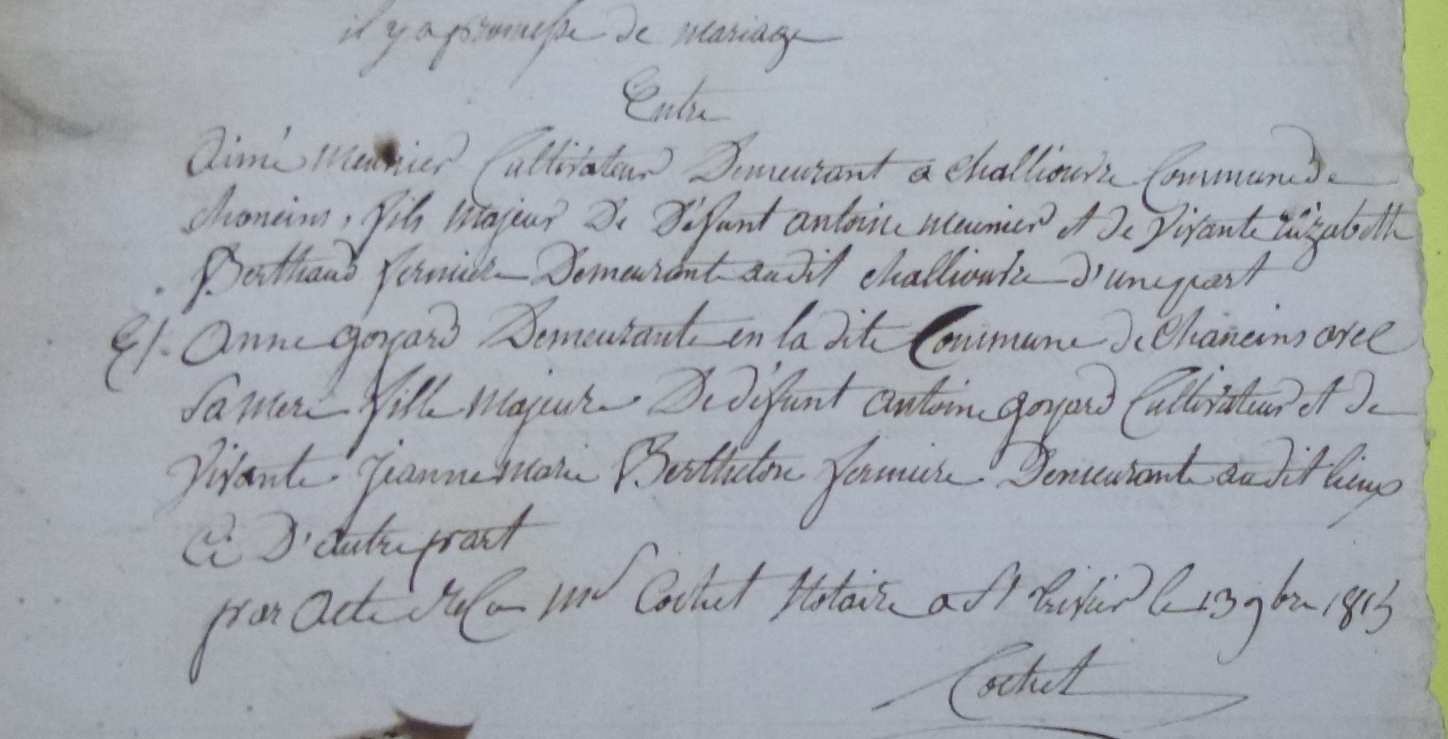 il y a promesse de mariage
Entre
Aimé Meunier Cultivateur Demeurant a challiouvre Commune de
chaneins, fils Majeur De Défunt antoine meunier et de vivante Elizabeth
Berthaud fermiere Demeurante audit challiouvre d'une part
Et. Anne goyard Demeurante en la dite Commune de Chaneins avec
sa mere fille Majeure De défunt antoine goyard Cultivateur et de
vivante jeanne marie Bertheton fermiere Demeurante audit lieux
D'autre part
par acte M Cochet Notaire a St trivier le 13 9bre 1815
Cochet